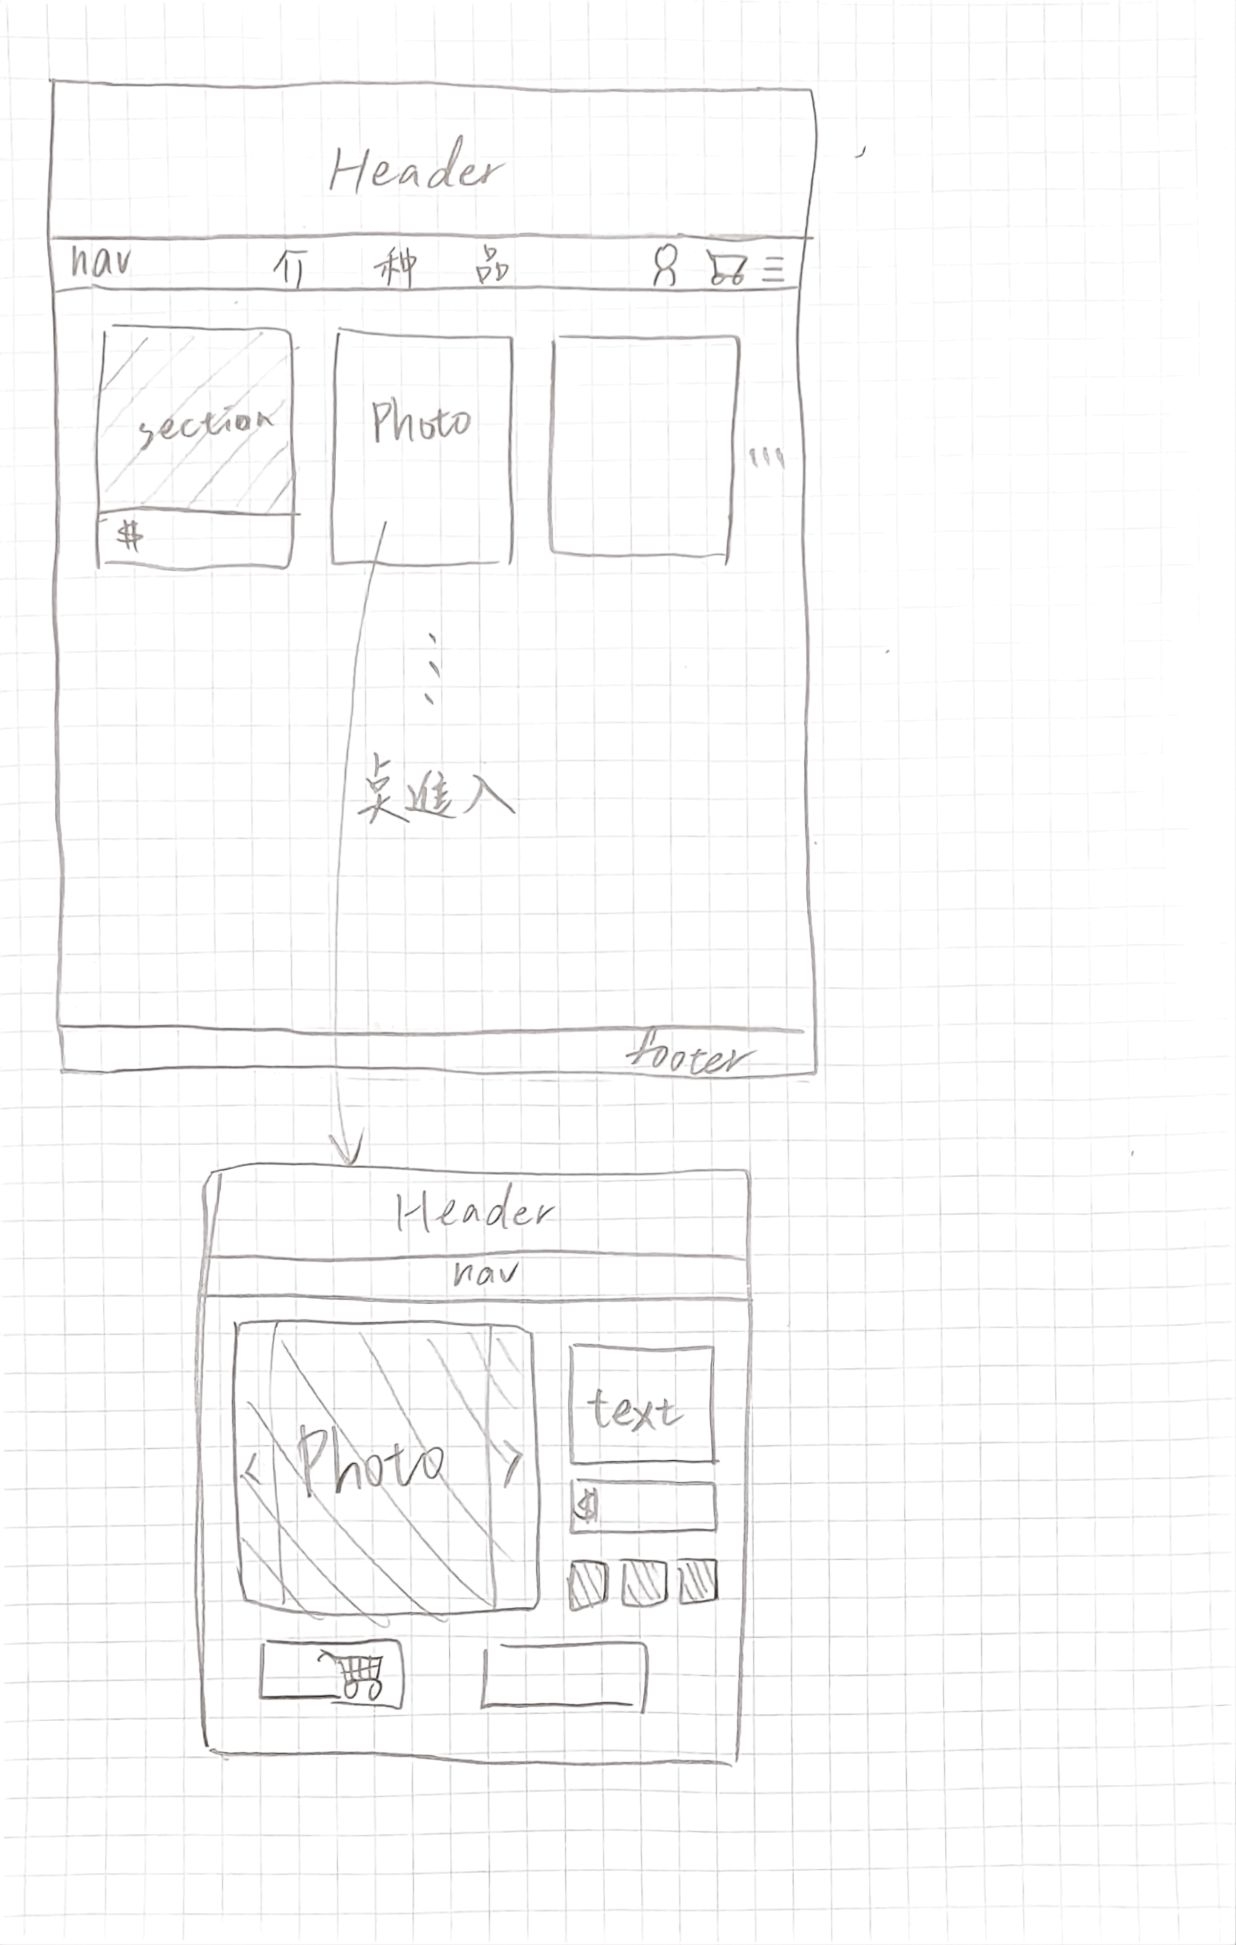 Header
nav 介 种 品
section Photo
$
...
点進入
footer
Header
nav
< Photo >
text
$